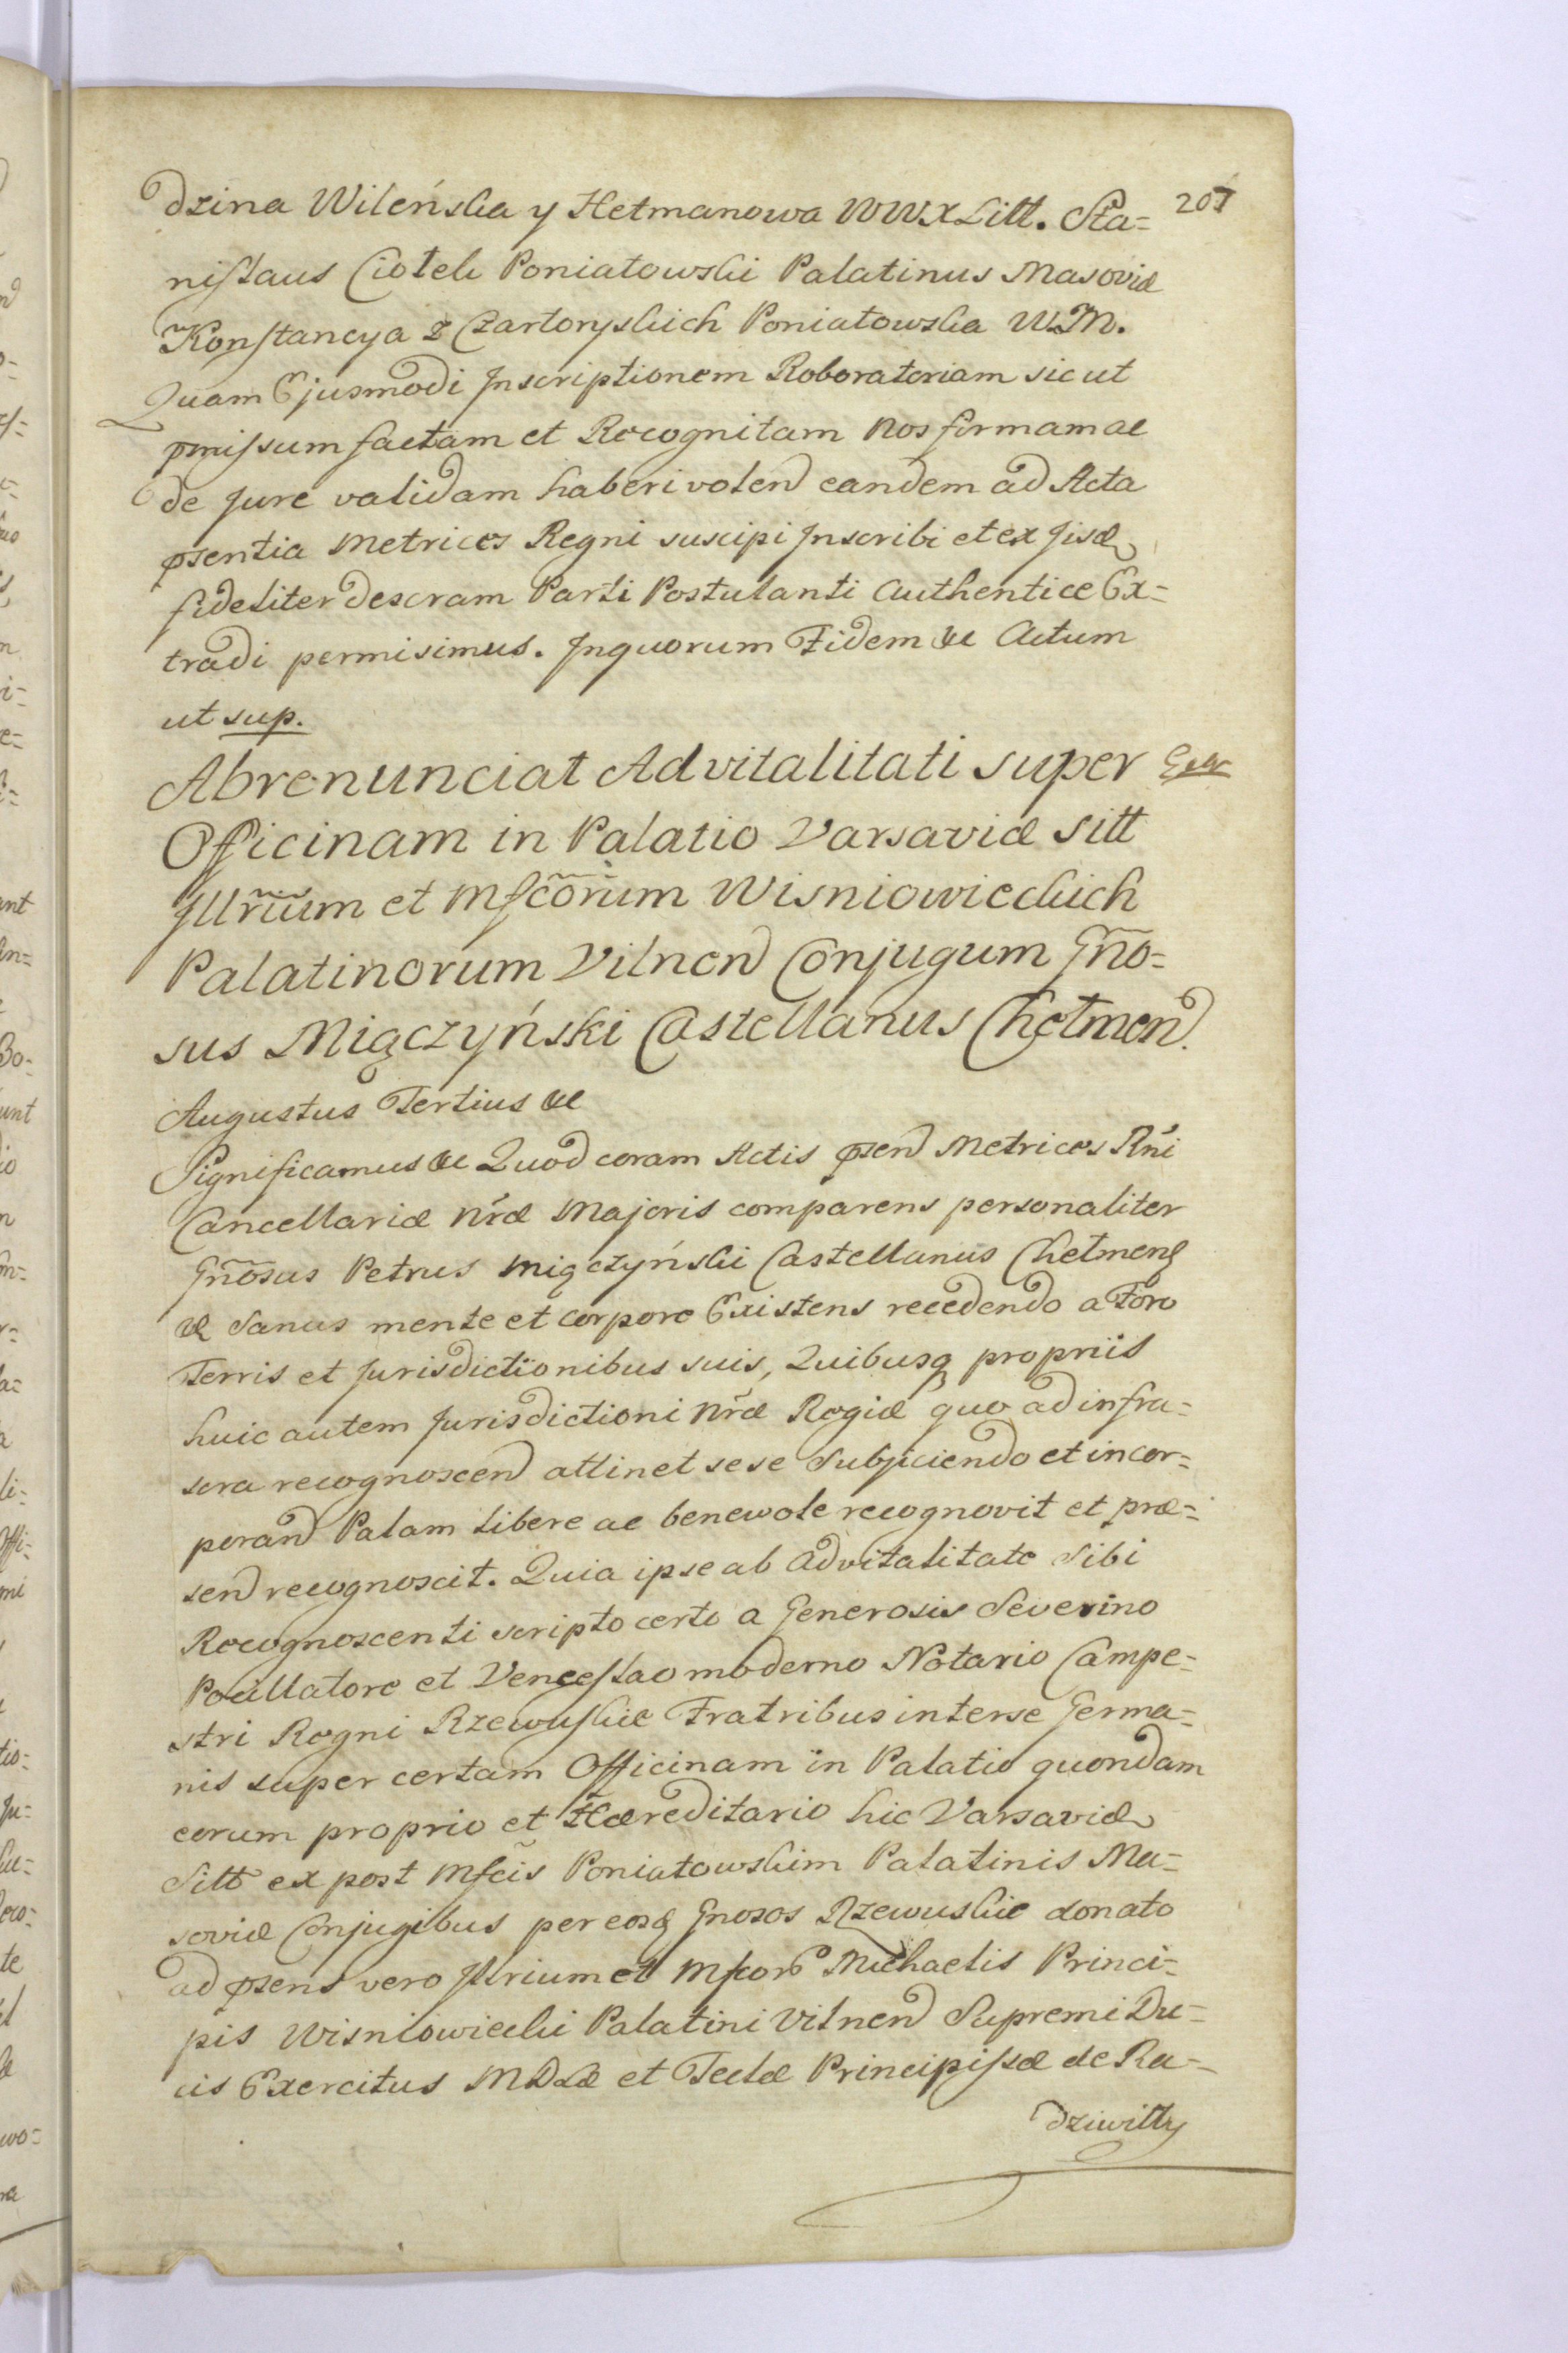 207
dzina Wileńska y Hetmanowa WWXLitt. Sta=
nisłaus Ciołek Poniatowski Palatinus Masoviæ
Konstancya z Czartoryskich Poniatowska W.M.
Quam Ejusmodi Inscriptionem Roboratoriam sic ut
pmissum factam et Recognitam Nos firmam ac
de Jure validam haberi volend eandem ad Acta
psentia Metrices Regni suscipi Inscribi et ex Jisd
fideliter descram Parti Postulanti Authentice Ex=
tradi permisimus. In quorum Fidem &c Actum
ut sup.
Abrenunciat Advitalitati super
Officinam in Palatio Varsaviæ Sitt
Jllrium et Mfcorum Wisniowieckich
Palatinorum Vilnen Conjugum Gno=
sus Miączyński Castellanus Chełmen.
Augustus Tertius &c
Significamus &c Quod coram Actis psen Metrices Rni
Cancellariæ Nræ Majoris comparens personaliter
Gnosus Petrus Miączyński Castellanus Chełmens
&c Sanus mente et corpore Existens recedendo a Foro
Terris et Jurisdictionibus suis, Quibusq propriis
huic autem Jurisdictioni Nræ Regiæ quo ad infra=
scra recognoscen attinet sese Subjiciendo et incor=
poran Palam libere ac benewole recognovit et præ=
sen recognoscit. Quia ipse ab Advitalitate Sibi
Recognoscenti scripto certo a Generosis Severino
Pocillatore et Venceslao moderno Notario Campe=
stri Regni Rzewuskie Fratribus inter se Germa=
nis super certam Officinam in Palatio quondam
eorum proprio et Hæreditario hic Varsaviæ
Sitt ex post Mfcis Poniatowskim Palatinis Ma=
soviæ Conjugibus per eosd Gnosos Rzewuskie donato
ad psens vero Jllrium et Mfcor Michaelis Princi=
pis Wisniowiecki Palatini Vilnen Supremi Du=
cis Exercitus MDLæ et Teclæ Principissæ de Ra=
dziwiłły